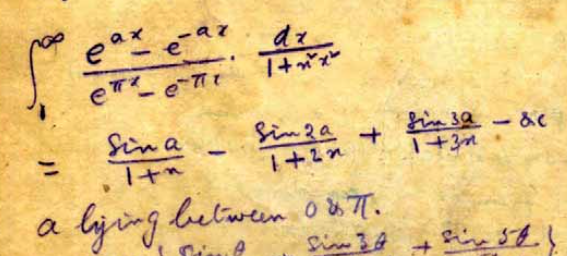 ∫₁^∞ (e^{ax} - e^{-ax})/(e^{πx} - e^{-πx}) · dx/(1+n²x²)
= Sin a/(1+n) - Sin 2a/(1+2n) + Sin 3a/(1+3n) - &c
a lying between 0 & π.
Sin 3θ + Sin 5θ